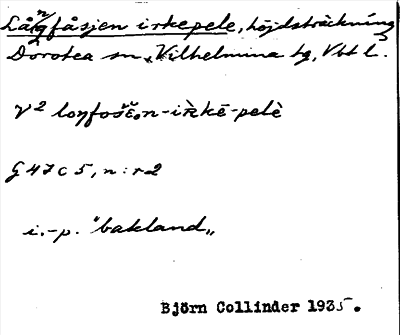 Långfåsjen irkepele, höjdsträckning
Dorotea sn, Vilhelmina tg, Vbt l.
V² loŋfošē̮n-iʀ̀kē-pelè
G 47 c 5, n:r 2
i.-p. "bakland„
Björn Collinder 1935.